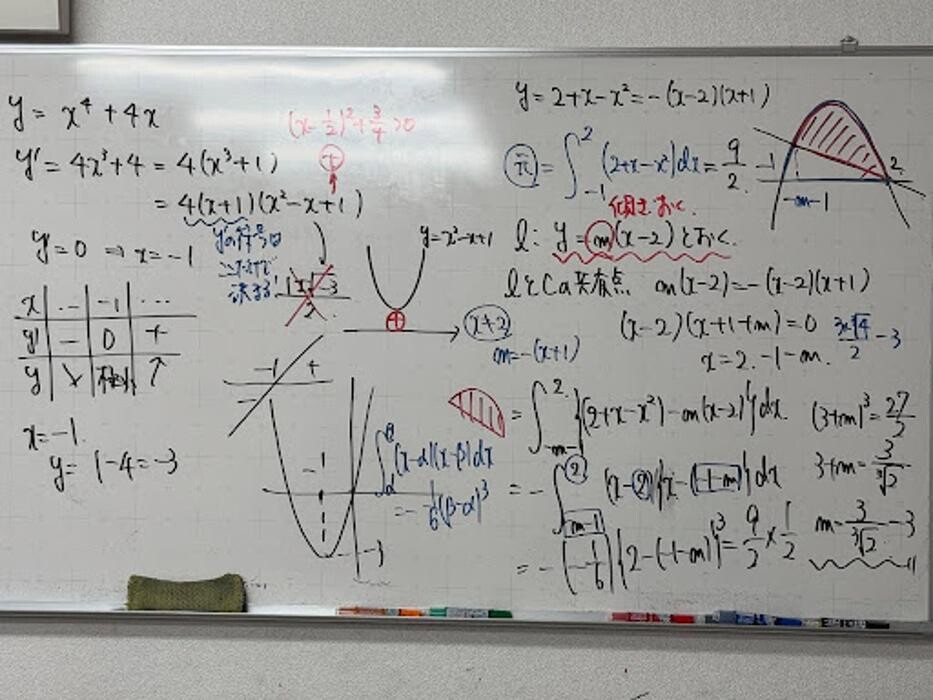 y = x⁴ + 4x
y' = 4x³ + 4 = 4(x³+1)
= 4(x+1)(x²-x+1)
(x-1/2)² + 3/4 > 0
+
y'の符号は
決まる!
y' = 0 ⇒ x = -1
x | … | -1 | …
y' | - | 0 | +
y | ↘ | 極小 | ↗
x = -1
y = 1-4 = -3
y = x²-x+1
+
-1 +
-
-1
-3
∫_α^β (x-α)(x-β)dx
= -1/6(β-α)³
y = 2+x-x² = -(x-2)(x+1)
-1
2
-m-1
= ∫_{-1}^{2} (2+x-x²)dx = 9/2
傾きおく
l: y = m(x-2) とおく.
lとCの共有点 m(x-2) = -(x-2)(x+1)
x≠2
m = -(x+1)
(x-2)(x+1+m) = 0
x = 2, -1-m.
3×∛4/2 - 3
= ∫_{-m-1}^{2} {(2+x-x²) - m(x-2)}dx
= -∫_{-m-1}^{2} (x-2){x-(-1-m)}dx
= -(-1/6){2-(-1-m)}³ = 9/2 × 1/2
(3+m)³ = 27/2
3+m = 3/∛2
m = 3/∛2 - 3